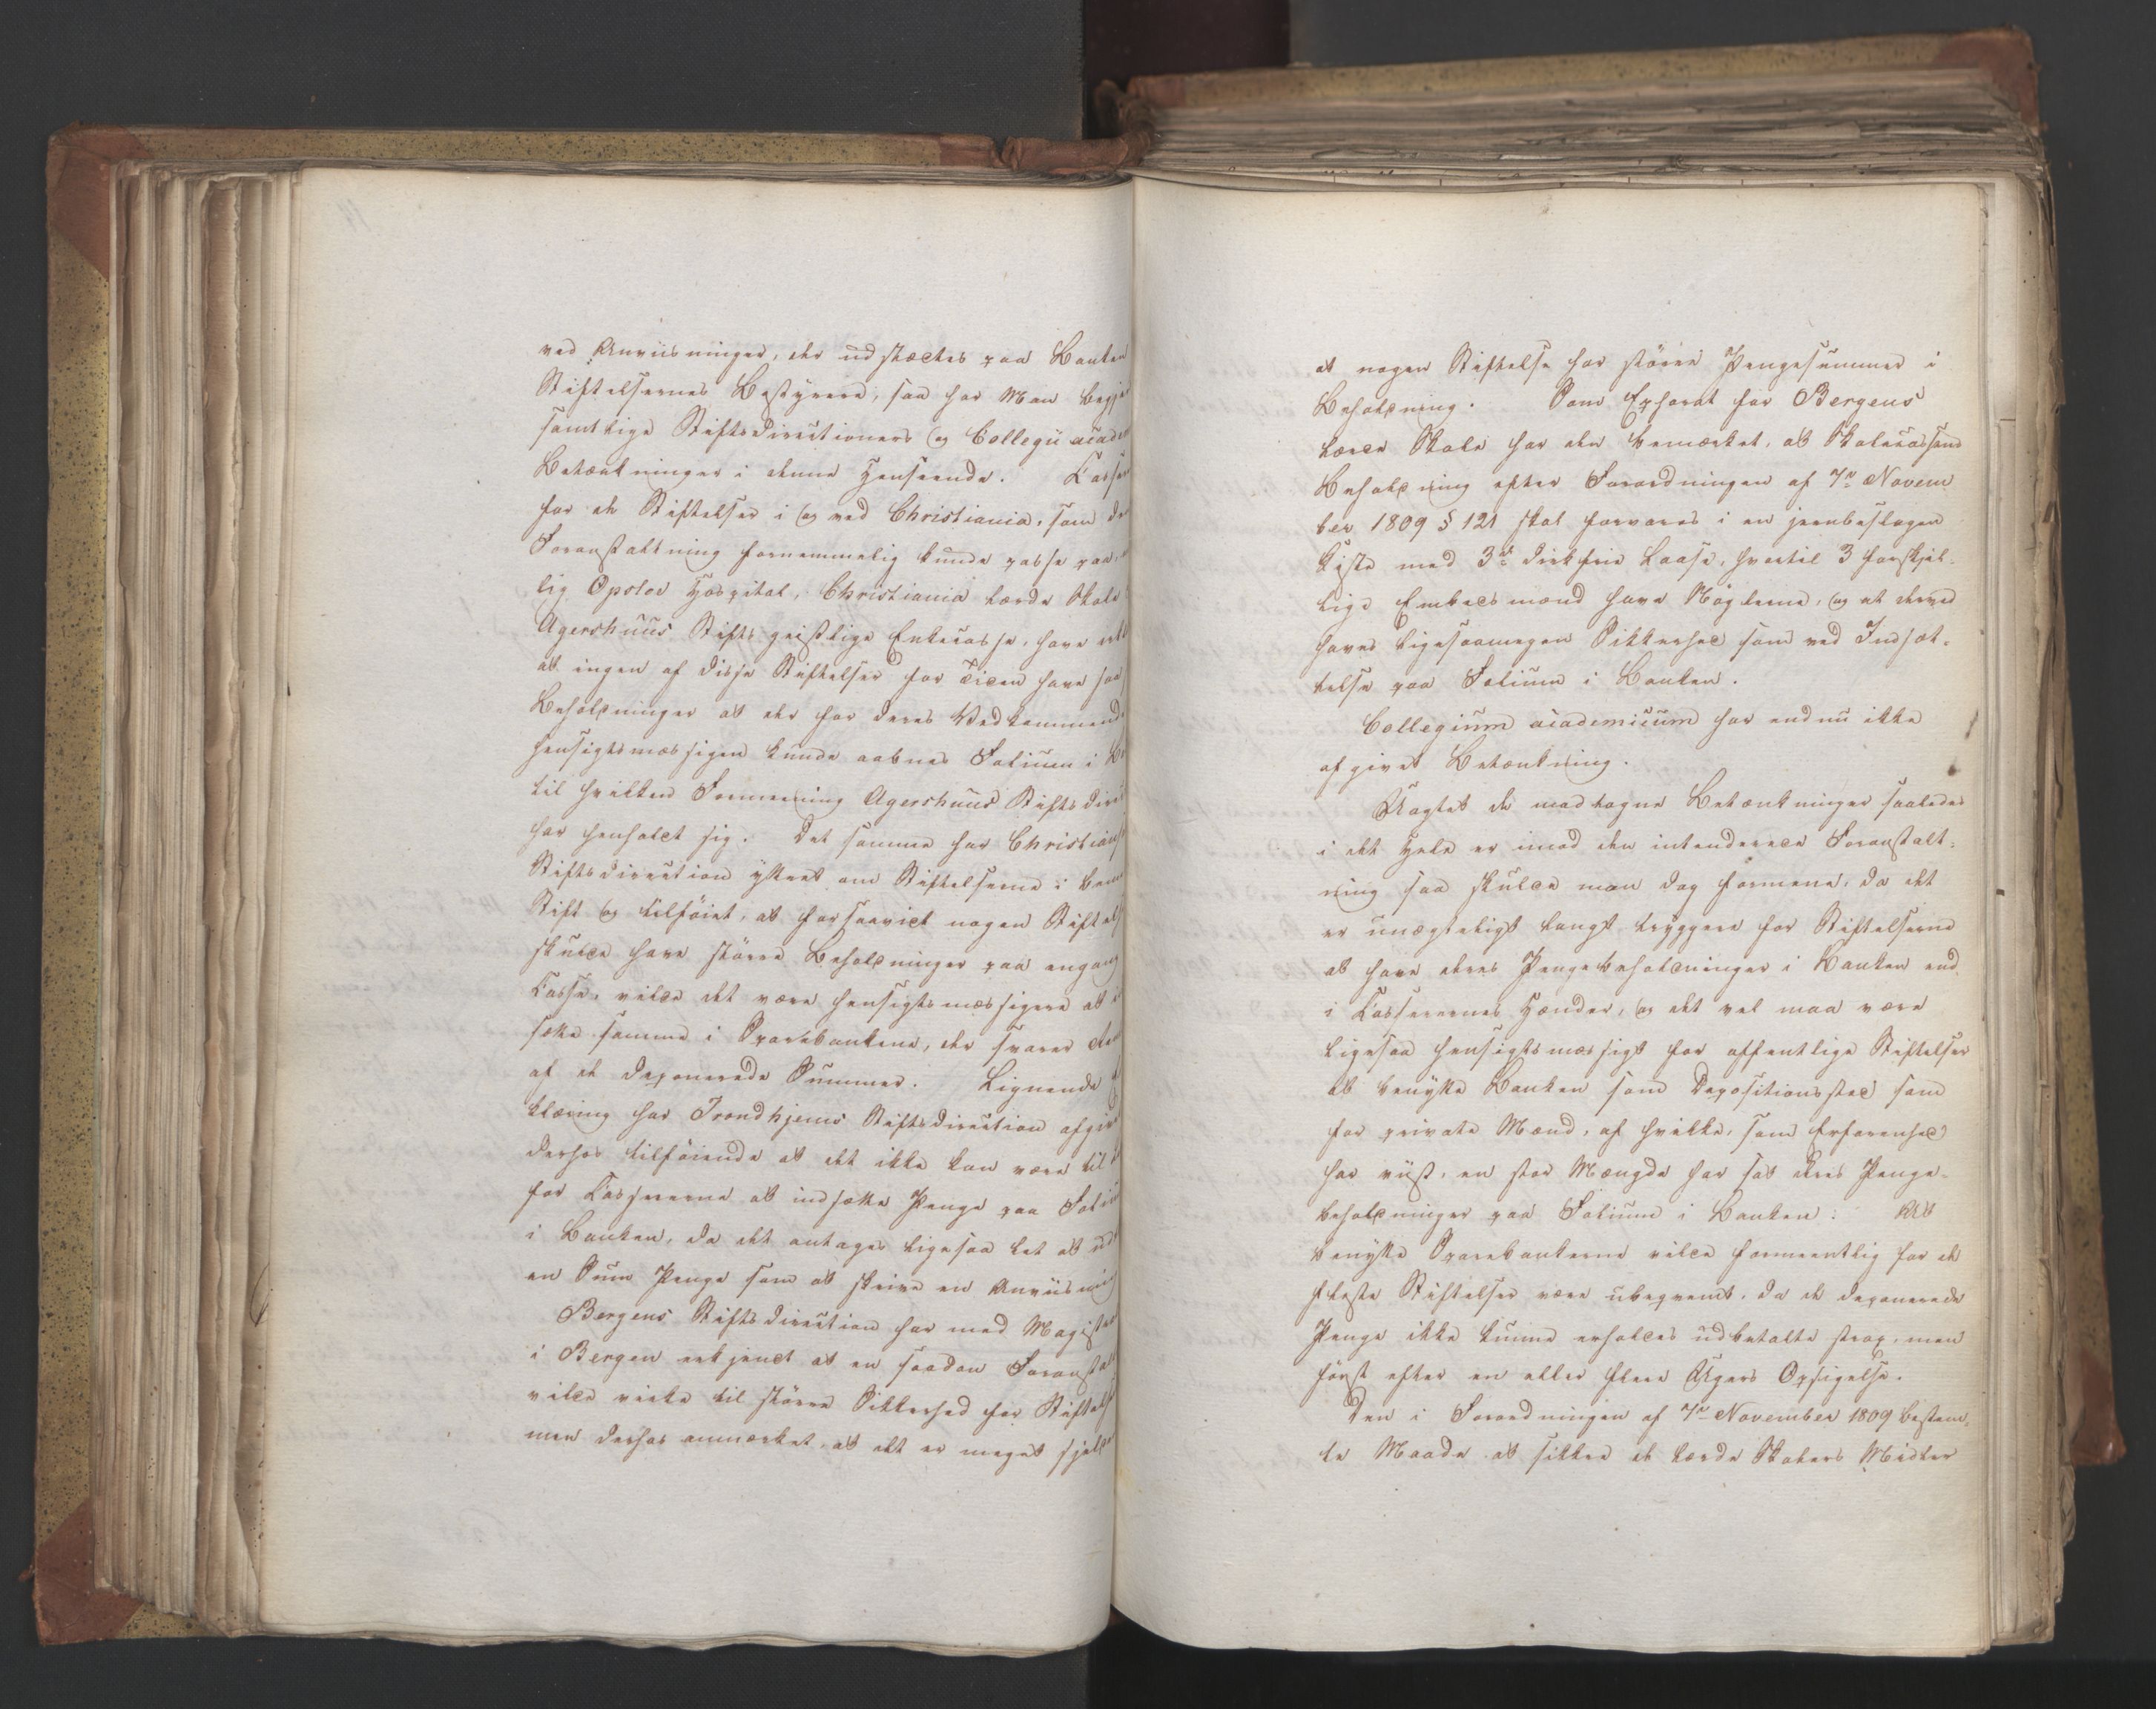 ved Anviisninger, der udstædes paa Banken
Stiftelsernes Bestyrere, saa har Man begj
samtlige Stiftsdirectioners og Collegii acade
Betænkninger i denne Henseende. Casse
for de Stiftelser i og ved Christiania, som de
Foranstaltning fornemmelig kunde passe paa,
lig Opsloe Hospital, Christiania lærde Skole
Agershuus Stifts geistlige Enkecasse, have
at ingen af disse Stiftelser for Tiden have saa
Beholdninger at der for deres Vedkommende
hensigtsmæssigen kunde aabnes Folium i B
til hvilken Formeening Agershuus Stiftsdirec
har henholdt sig. Det samme har Christians
Stiftsdirection yttret om Stiftelserne i
Stift og tilföiet, at forsaavidt nogen Stiftelse
skulde have större Beholdninger paa engang
Casse, vilde det være hensigtsmæssigere at
sætte samme i Sparebankene, der svarer
af de deponerede Summer. Lignende
klæring har Trondhjems Stiftsdirection afgivet
derhos tilföiende at det ikke kan være til
for Cassererne at indsætte Penge paa Foliu
i Banken, da det antages ligesaa let at
en Sum Penge som at skrive en Anviisning
Bergens Stiftsdirection har med Magistra
i Bergen erkjendt at en saadan Foransta
vilde virke til större Sikkerhed for Stiftelse
men derhos anmærket, at det er meget sjelde
at nogen Stiftelse har större Pengesummer i
Beholdning. Som Ephorat for Bergens
lærde Skole har den bemærket, at Skolecassens
Beholdning efter Forordningen af 7de Novem
ber 1809 § 121 skal forvares i en jernbeslagen
Kiste med 3de dirkfrie Laase, hvortil 3 forskjel-
lige Embedsmænd have Nöglerne, og at derved
haves ligesaamegen Sikkerhed som ved Indsæt-
telse paa Folium i Banken.
Collegium academicum har endnu ikke
afgivet Betænkning.
Uagtet de modtagne Betænkninger saaledes
i det Hele er imod den intenderede Foranstalt-
ning saa skulde man dog formene, da det
er unægteligt langt tryggere for Stiftelserne
at have deres Pengebeholdninger i Banken end
i Cassererens Hænder, og det vel maa være
ligesaa hensigtsmæssigt for offentlige Stiftelser
at benytte Banken som Depositionssted som
for private Mænd, af hvilke, som Erfarenhed
har viist, en stor Mængde har sat deres Penge-
beholdninger paa Folium i Banken: At
benytte Sparebankerne vilde formeentlig for de
fleste Stiftelser være ubeqvemt, da de deponerede
Penge ikke kunne erholdes udbetalte strax, men
först efter en eller flere Ugers Opsigelse.
Den i Forordningen af 7de November 1809 bestem-
te Maade at sikkre de lærde Skolers Midler